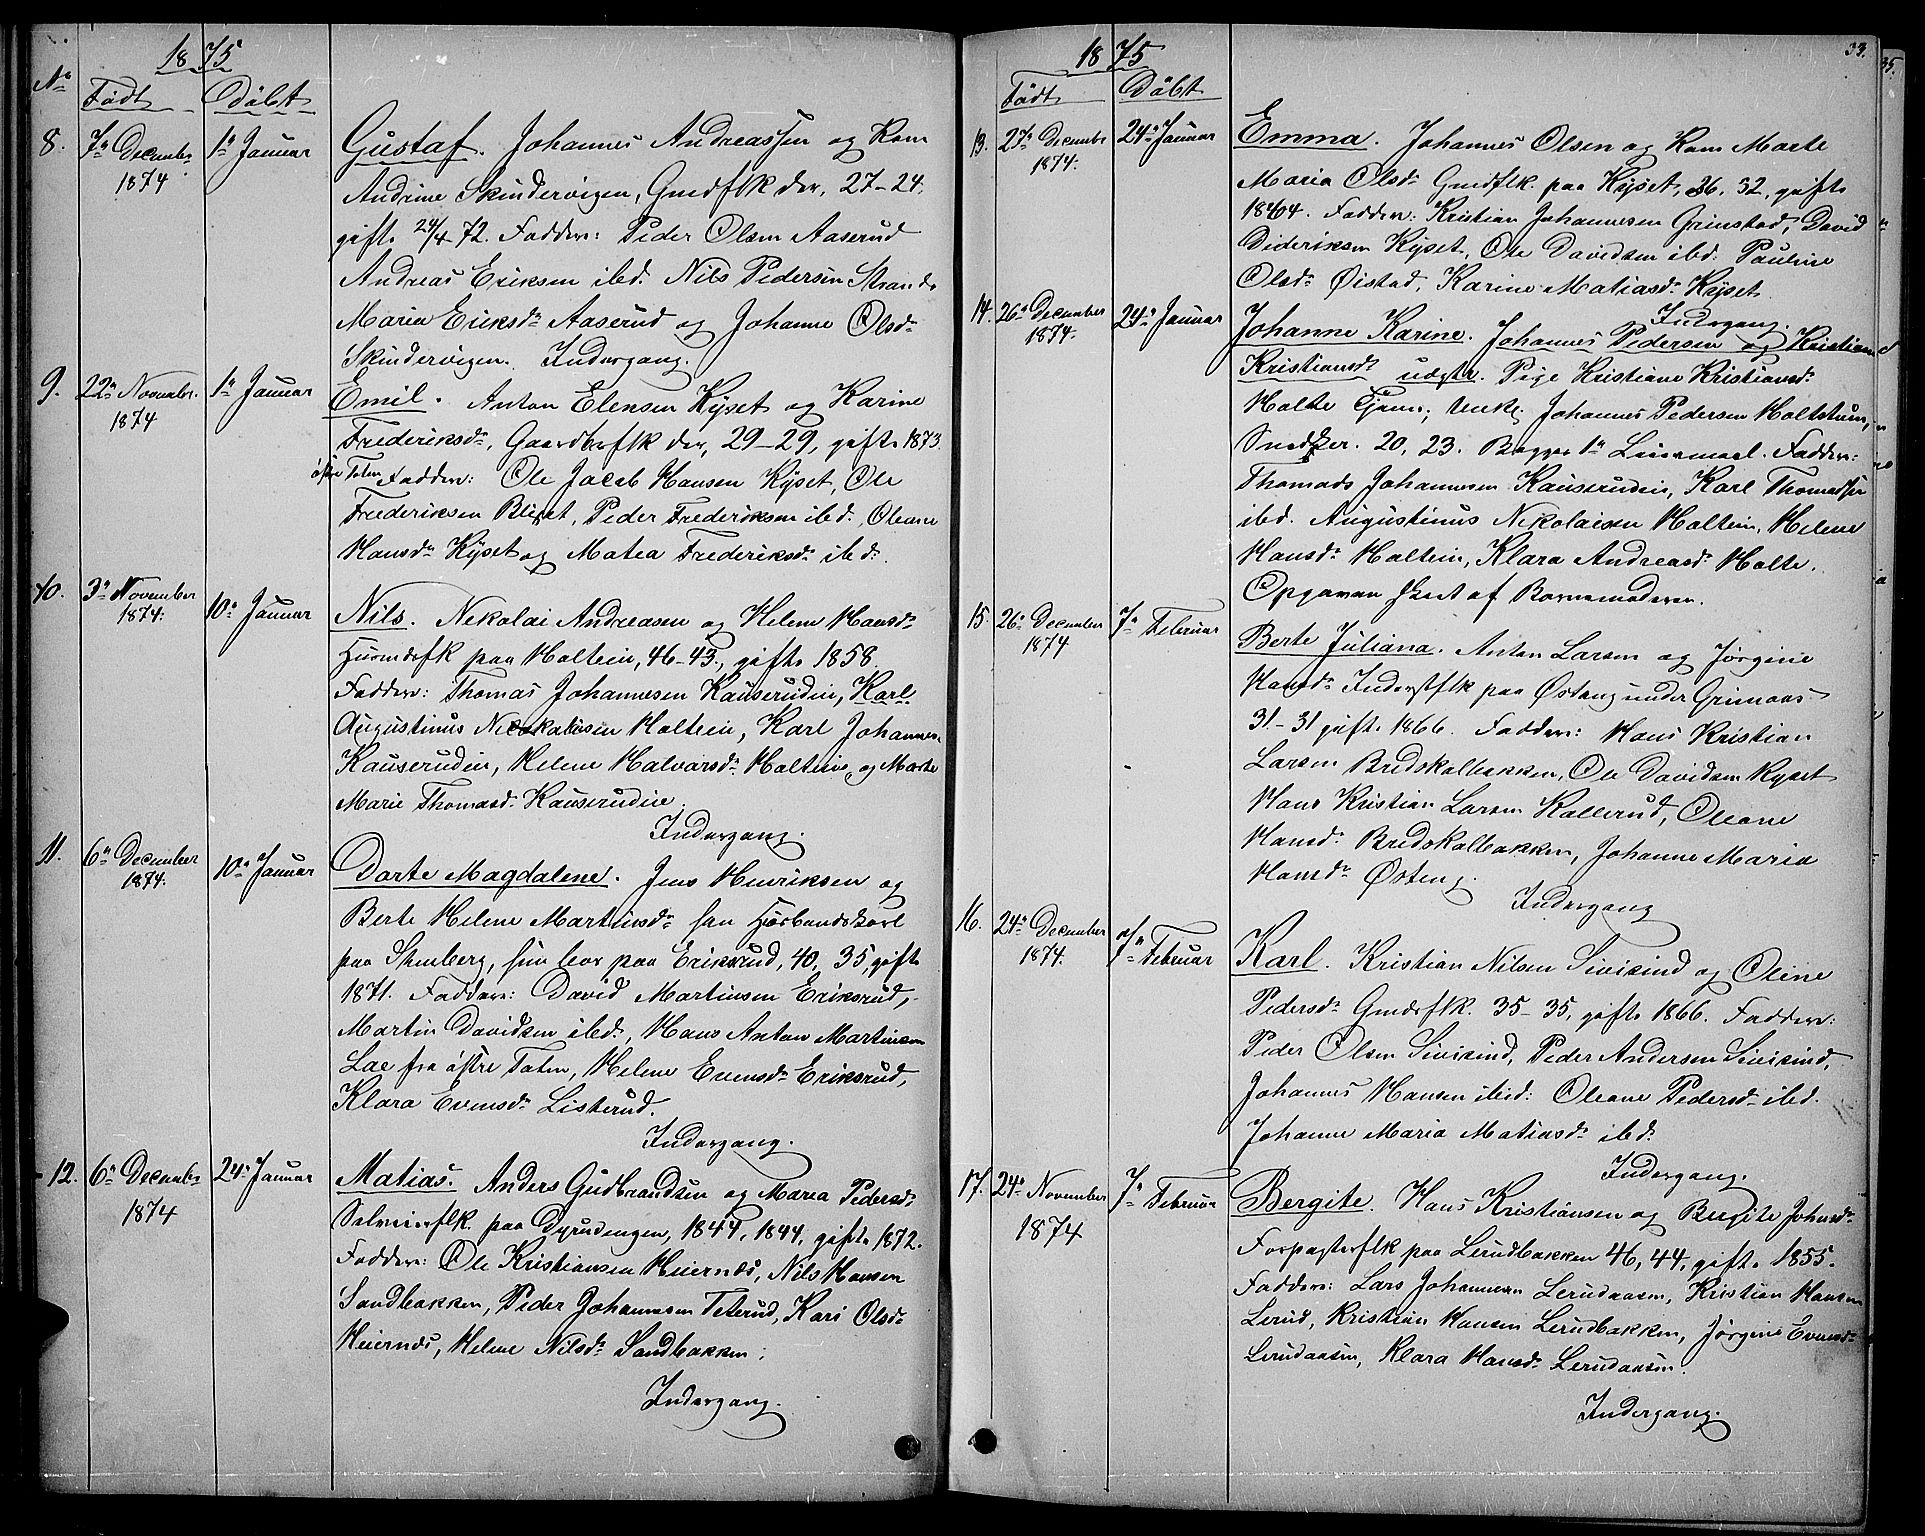 1875
No Født Døbt
8. 7de Decembr 1874. 1ste Januar
Gustaf. Johannes Andreassen og Kone
Andrine Skindervigen, Gmdflk der, 27-24.
gifte 24/4 72. Faddere: Peder Olsen Aaserud
Andreas Eriksen ibd. Nils Pedersen Strande
Maria Eriksdr Aaserud og Johanne Olsdr
Skindervigen. Indergang.
9. 22de Novmbr. 1874 1ste Januar
Emil. Anton Elensen Kyset og Karine
Frederiksdr, Gaardbrflk der, 29-29, gifte 1873.
østre Toten Faddere: Ole Jacob Hansen Kyset, Ole
Frederiksen Bliset, Peder Frederiksen ibd. Oleane
Hansdr Kyset og Matea Frederiksdr ibd.
10. 3de November 1874. 10de Januar
Nils. Nekolai Andreasen og Helene Hansdr
Husmdsfk paa Holtein, 46-43, gifte 1858.
Faddere: Thomas Johannesen Kauserudin, Karl
Augustinus Nicokalaisen Holtein, Karl Johannes.
Kauserudin, Helene Halvarsdr Holtein og Marte
Marie Thomasdr Kauserudin.
Indergang.
11. 6te December 1874. 10de Januar
Dorte Magdalene. Jens Henriksen og
Berte Helene Martinsdr han Husbandskarl
paa Stenberg, hun bor paa Eriksrud, 40, 35, gifte
1871. Faddere: David Martinsen Eriksrud,
Martin Davidsen ibd., Hans Anton Martinsen
Lae fra østre Toten, Helene Evensdr Eriksrud,
Klara Evensdr Listerud.
Indergang.
12. 6te Decembr 1874 24de Januar
Matias. Anders Gudbrandsen og Maria Pedersdr
Selveierflk. paa Dyrudengen, 1844, 1844, gifte 1872.
Faddere: Ole Kristiansen Heiernes, Nils Hansen
Sandbakken, Peder Johannesen Teterud, Kari Olsdr
Heiernes, Helene Nilsdr Sandbakken.
Indergang.
1875 33.
35.
Født Døbt
13. 27de Decembr 1874. 24de Januar
Emma. Johannes Olsen og Kone Marte
Maria Olsdr Gmdflk. paa Kyset, 36, 32, gifte
Faddere: Kristian Johannesen Grimstad, David
Dideriksen Kyset, Ole Davidsen ibd. Pauline
Olsdr Øistad, Karine Matiasdr Kyset.
Indergang.
14. 26de December 1874. 24de Januar
Johanne Karine. Johannes Pedersen og Kristiane
Kristiansdr uægte. Pige Kristiane Kristiansdr
Holte Tjenr, Unk. Johannes Pedersen Holtstuen,
Snedker. 20, 23. Begges 1ste Leiermaal. Faddere:
Thomas Johannesen Kauserudin, Karl Thomassen
ibd. Augustinus Nekolaisen Holtein, Helene
Hansdr Holtein, Klara Andreasdr Holte.
Opgaven skeet af Barnemoderen.
15. 26de December 1874 7de Februar
Berte Juliana. Anton Larsen og Jørgine
Hansdr Inderstflk paa Østeng under Grimaas
31-31 gifte 1866. Faddere: Hans Kristian
Larsen Bredskalbakken, Ole Davidsen Kyset
Hans Kristian Larsen Kallerud, Oleane
Hansdr Bredskalbakken, Johanne Maria
Hansdr Østeng.
Indergang
16. 24de December 1874. 7de Februar
Karl. Kristian Nilsen Sivisind og Oline
Pedersdr Gmdsflk. 35-35, gifte 1866. Faddere:
Peder Olsen Sivisind, Peder Andersen Sivisind,
Johannes Hansen ibid: Oleane Pedersdr ibd.
Johanne Maria Matiasdr ibd.
Indergang.
17. 24de November 1874 7de Februar
Bergite. Hans Kristiansen og Bergite Johnsdr
Forpagterflk paa Lerudbakken 46, 44, gifte 1855.
Faddere: Lars Johannesen Lerudaasen, Kristian Hansen
Lerud, Kristian Hansen Lerudbakken, Jørgine Evensdr
Lerudaasen, Klara Hansdr Lerudaasen.
Indergang.